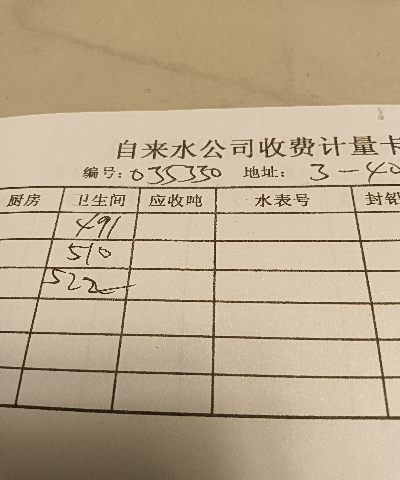 自来水公司收费计量卡
编号: 035330 地址: 3-40
厨房 卫生间 应收吨 水表号 封铅
491
510
522